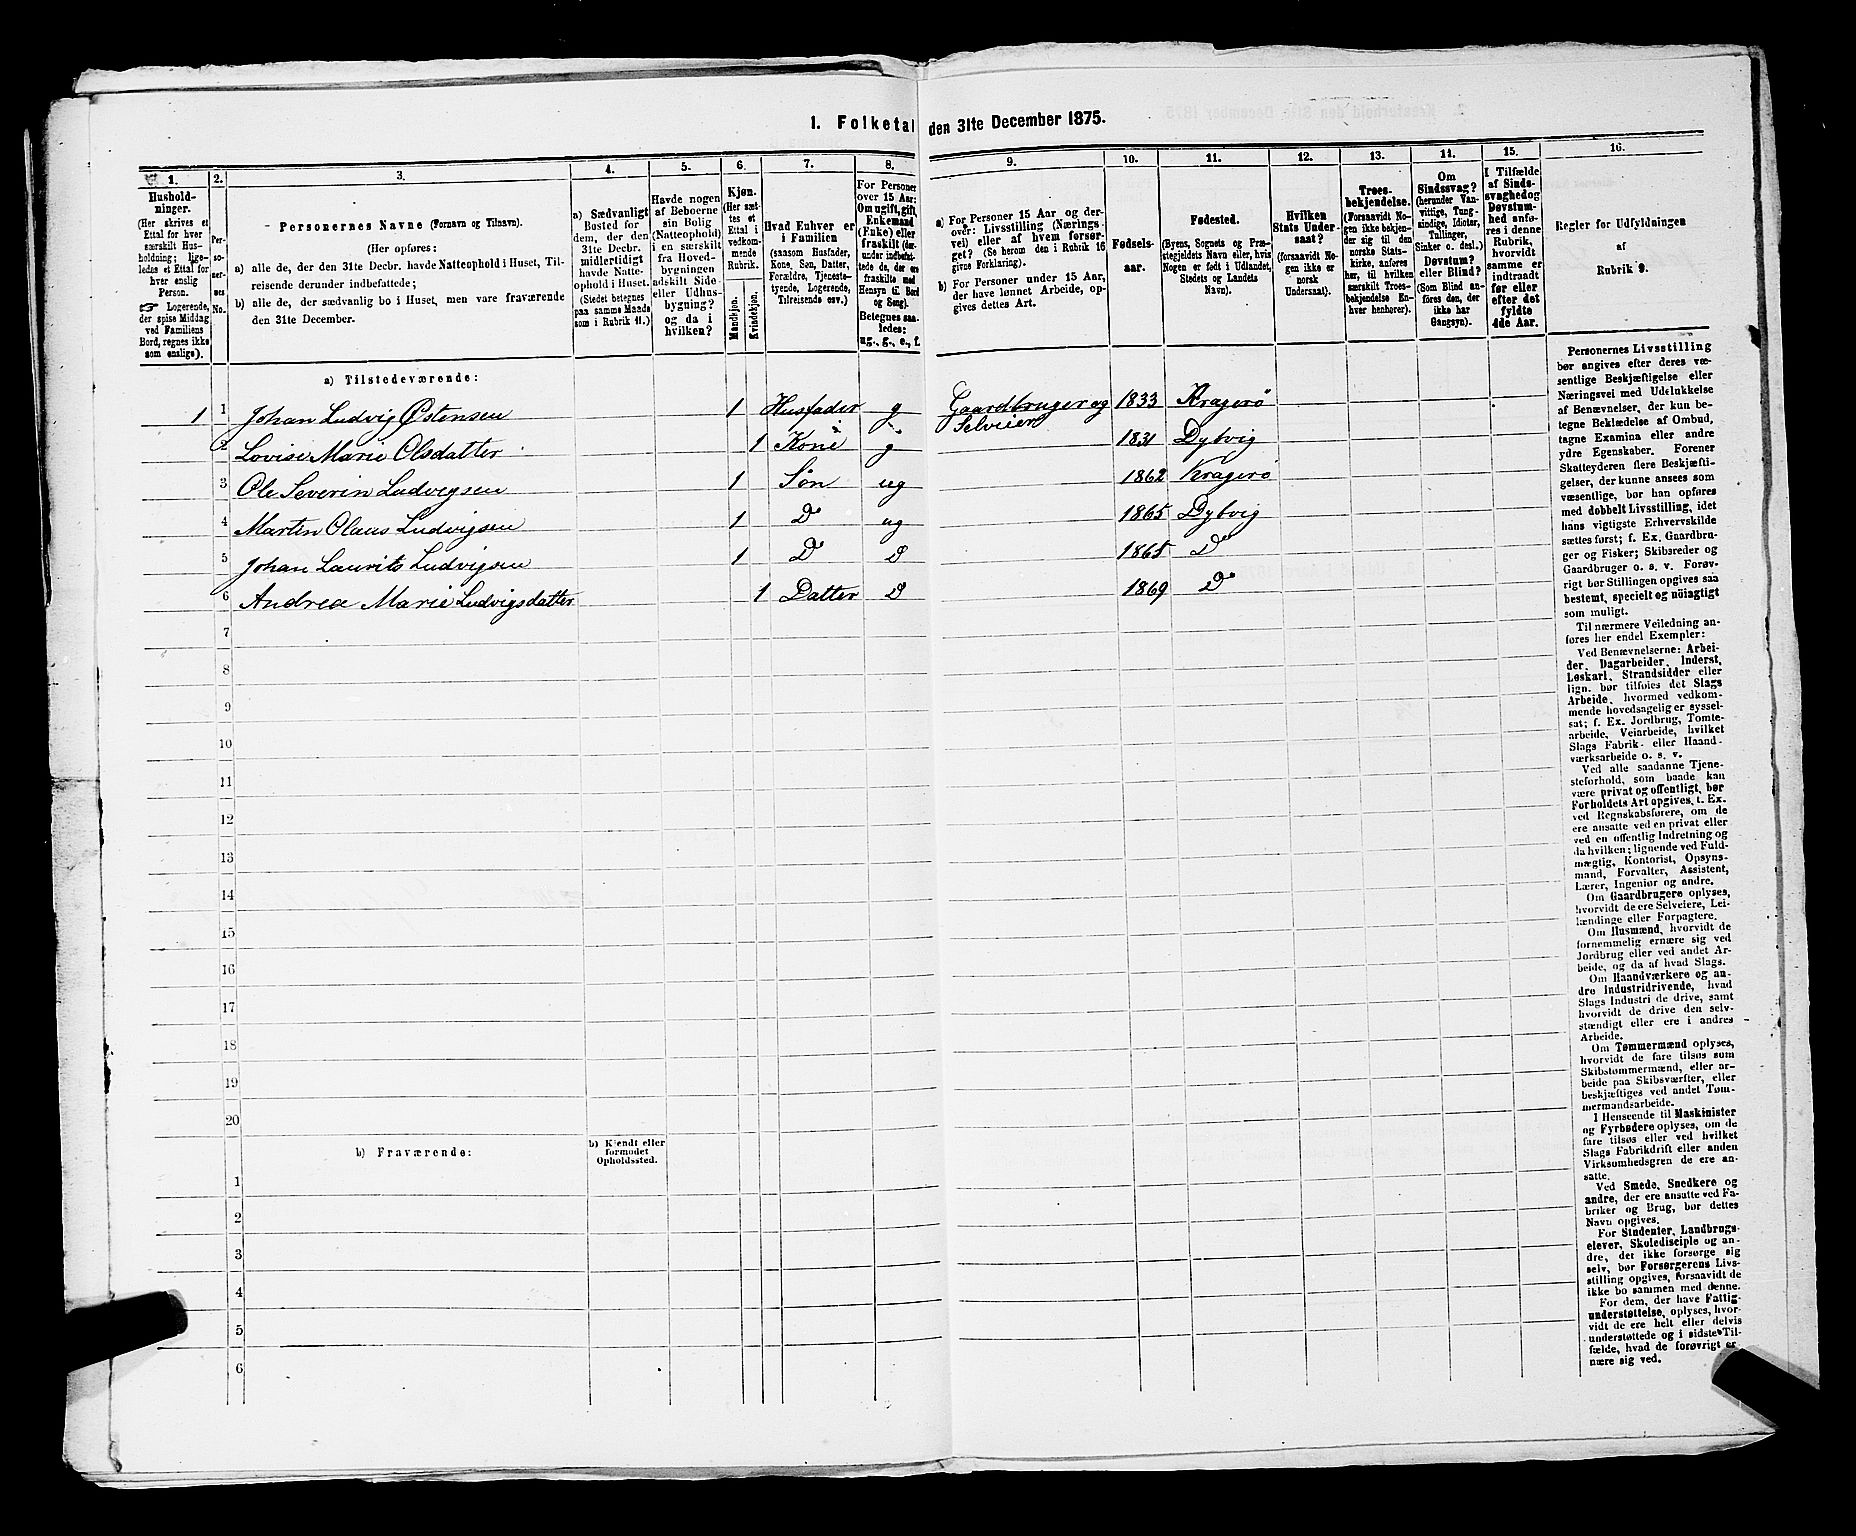 1. Folketal den 31te December 1875.
1.
2.
3.
4.
5.
6.
7.
8.
9.
10.
11.
12.
13.
14.
15.
16.
Hushold-
ninger.
(Her skrives et
Ettal for hver
særskilt Hus-
holdning; lige-
ledes et Ettal for
hver enslig
Person.
☞ Logerende,
der spise Middag
ved Familiens
Bord, regnes ikke
som enslige).
Per-
so-
ner-
nes
No.
Personernes Navne (Fornavn og Tilnavn).
(Her opføres:
a) alle de, der den 31te Decbr. havde Natteophold i Huset, Til-
reisende derunder indbefattede;
b) alle de, der sædvanlig bo i Huset, men vare fraværende
den 31te December.
a) Sædvanligt
Bosted for
dem, der den
31te Decbr.
midlertidigt
havde Natte-
ophold i Huset.
(Stedet betegnes
paa samme Maade
som i Rubrik 11.)
Havde nogen
af Beboerne
sin Bolig
(Natteophold)
i en særskilt
fra Hoved-
bygningen
adskilt Side-
eller Udhus-
bygning?
og da i
hvilken?
Kjøn.
(Her sæt-
tes et
Ettal i
vedkom-
mende
Rubrik.
Mandkjøn.
Kvindekjøn.
Hvad Enhver er
i Familien
(saasom Husfader,
Kone, Søn, Datter,
Forældre, Tjeneste-
tyende, Logerende,
Tilreisende osv.)
For Personer
over 15 Aar:
Om ugift, gift,
Enkemand
(Enke) eller
fraskilt (der-
under indbefat-
tede de, der ere
fraskilte med
Hensyn til Bord
og Seng).
Betegnes saa-
ledes:
ug., g., e., f.
a) For Personer 15 Aar og der-
over: Livsstilling (Nærings-
vei) eller af hvem forsør-
get? (Se herom den i Rubrik 16
givne Forklaring).
b) For Personer under 15 Aar,
der have lønnet Arbeide, op-
gives dettes Art.
Fødsels-
aar.
Fødested.
(Byens, Sognets og Præ-
stegjeldets Navn eller, hvis
Nogen er født i Udlandet,
Stedets og Landets
Navn).
Hvilken
Stats Under-
saat?
(forsaavidt No-
gen ikke er
norsk
Undersaat).
Troes-
bekjendelse.
(Forsaavidt No-
gen ikke bekjen-
der sig til den
norske Stats-
kirke, anføres
her, til hvilken
særskilt Troes-
bekjendelse En-
hver henhører).
Om
Sindssvag?
(herunder Van-
vittige, Tung-
sindige, Idioter,
Tullinger,
Sinker o. desl.)
Døvstum?
eller Blind?
(Som Blind an-
føres den, der
ikke har
Gangsyn).
I Tilfælde
af Sinds-
svaghed og
Døvstum-
hed anfø-
res i denne
Rubrik,
hvorvidt
samme er
indtraadt
før eller
efter det
fyldte
4de Aar.
Regler for Udfyldningen
af
Rubrik 9.
a) Tilstedeværende:
1 1 Johan Ludvig Østensen 1 Husfader g Gaardbruger og Selveier 1833 Kragerø
2 Lovise Marie Olsdatter 1 Kone g 1831 Dybvig
3 Ole Severin Ludvigsen 1 Søn ug 1862 Kragerø
4 Martin Olaus Ludvigsen 1 Do ug 1865 Dybvig
5 Johan Laurits Ludvigsen 1 Do D 1865 Do
6 Andrea Marie Ludvigsdatter 1 Datter D 1869 Do
7
8
9
10
11
12
13
14
15
16
17
18
19
20
b) Fraværende:
b) Kjendt eller
formodet
Opholdssted.
1
2
3
4
5
6
Personernes Livsstilling
bør angives efter deres væ-
sentlige Beskjæftigelse eller
Næringsvei med Udelukkelse
af Benævnelser, der kun be-
tegne Beklædelse af Ombud,
tagne Examina eller andre
ydre Egenskaber. Forener
Skatteyderen flere Beskjæfti-
gelser, der kunne ansees som
væsentlige, bør han opføres
med dobbelt Livsstilling, idet
hans vigtigste Erhvervskilde
sættes først; f. Ex. Gaardbru-
ger og Fisker; Skibsreder og
Gaardbruger o. s. v. Forøv-
rigt bør Stillingen opgives saa
bestemt, specielt og nöiagtigt
som muligt.
Til nærmere Veiledning an-
føres her endel Exempler:
Ved Benævnelserne: Arbei-
der, Dagarbeider, Inderst,
Løskarl, Strandsidder eller
lign. bør tilføies det Slags
Arbeide, hvormed vedkom-
mende hovedsagelig er syssel-
sat; f. Ex. Jordbrug, Tomte-
arbeide, Veiarbeide, hvilket
Slags Fabrik- eller Haand-
værksarbeide o. s. v.
Ved alle saadanne Tjene-
steforhold, som baade kan
være privat og offentligt, bør
Forholdets Art opgives, t. Ex.
ved Regnskabsførere, om de
ere ansatte ved en privat eller
ved en offentlig Indretning og
da hvilken; lignende ved Fuld-
mægtig, Kontorist, Opsyns-
mand, Forvalter, Assistent,
Lærer, Ingeniør og andre.
Om Gaardbrugere oplyses,
hvorvidt de ere Selveiere, Lei-
lændinge eller Forpagtere.
Om Husmænd, hvorvidt de
fornemmelig ernære sig ved
Jordbrug eller ved andet Ar-
beide, og da af hvad Slags.
Om Haandværkere og an-
dre Industridrivende, hvad
Slags Industri de drive, samt
hvorvidt de drive den selv-
stændigt eller ere i andres
Arbeide.
Om Tømmermænd oplyses,
hvorvidt de fare tilsøs som
Skibstømmermænd, eller ar-
beide paa Skibsværfter, eller
beskjæftiges ved andet Tøm-
mermandsarbeide.
I Henseende til Maskinister
og Fyrbødere oplyses, om de
fare tilsøs eller ved hvilket
Slags Fabrikdrift eller anden
Virksomhedsgren de ere an-
satte.
Ved Smede, Snedkere og
andre, der ere ansatte ved Fa-
briker og Brug, bør dettes
Navn opgives.
For Studenter, Landbrugs-
elever, Skoledisciple og an-
dre, det ikke forsørge sig
selv, bør Forsørgerens Livs-
stilling opgives, forsaavidt de
ikke bo sammen med denne.
For dem, der have Fattig-
understøttelse, oplyses, hvor-
vidt de ere helt eller delvis
understøttede og i sidste Til-
fælde, hvad de forøvrigt er-
nære sig ved.